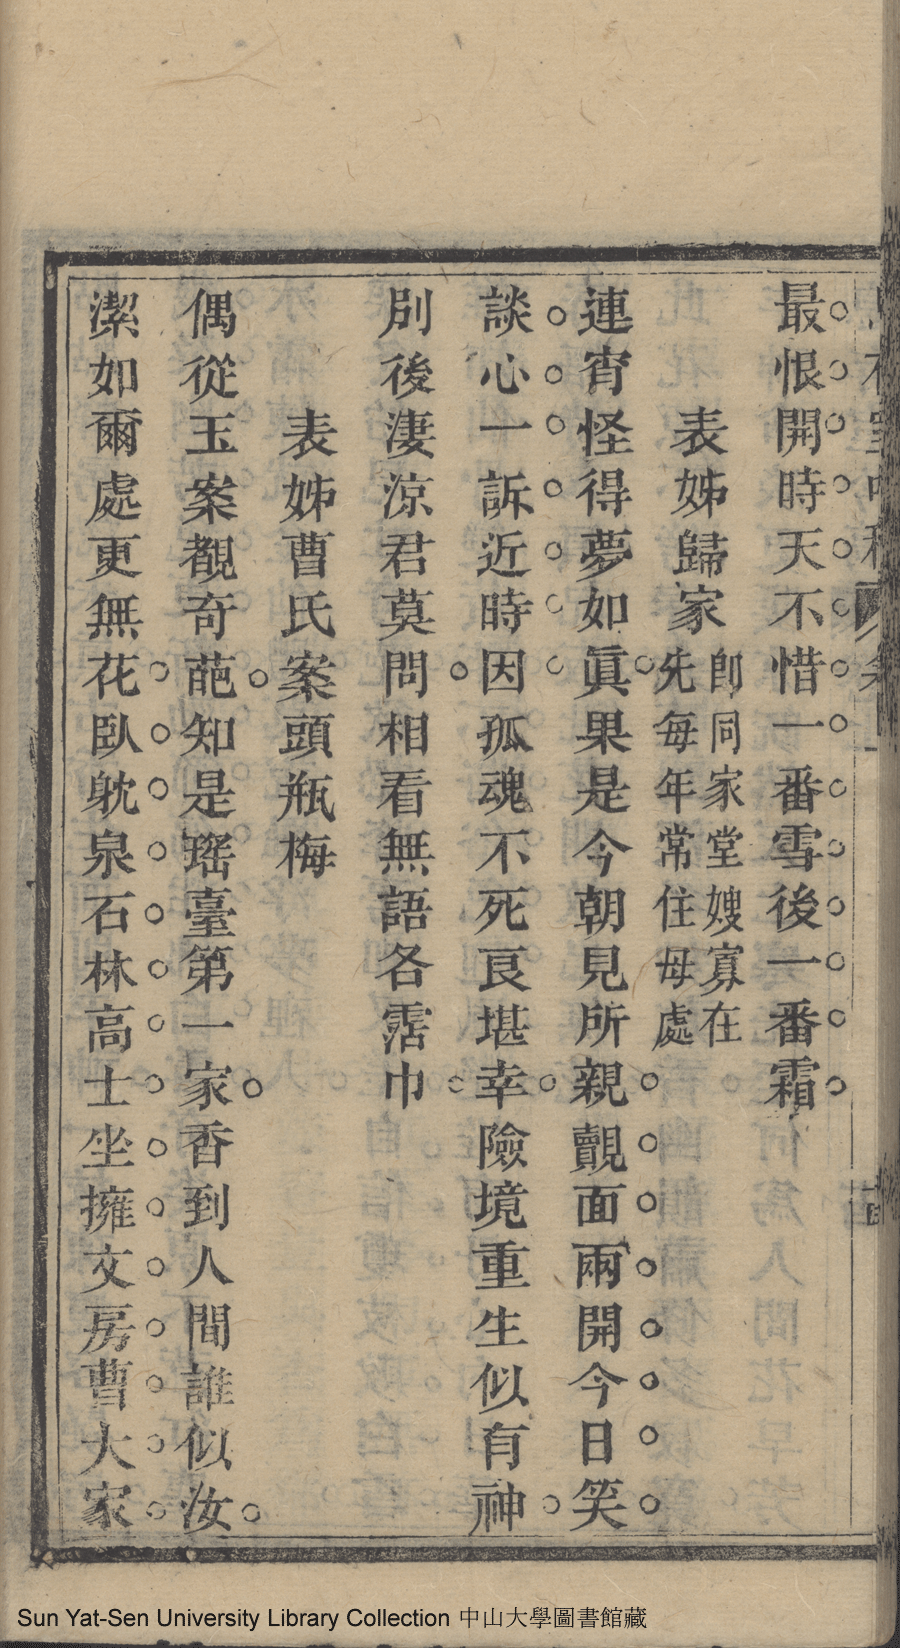 最恨開時天不惜一番雪後一番霜
表姊歸家卽同家堂嫂寡在先每年常住母處
連宵怪得夢如眞果是今朝見所親覿面兩開今日笑
談心一訴近時因孤魂不死良堪幸險境重生似有神
別後淒涼君莫問相看無語各霑巾
表姊曹氏案頭瓶梅
偶從玉案覩奇葩知是瑤臺第一家香到人間誰似汝
潔如爾處更無花臥躭泉石林高士坐擁文房曹大家
Sun Yat-Sen University Library Collection 中山大學圖書館藏